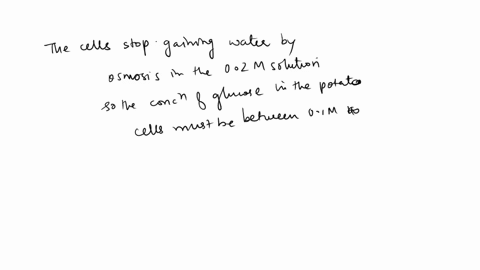 The cells stop gaining water by
osmosis in the 0.02 M solution
so the concn of glucose in the potato
cells must be between 0.1M to